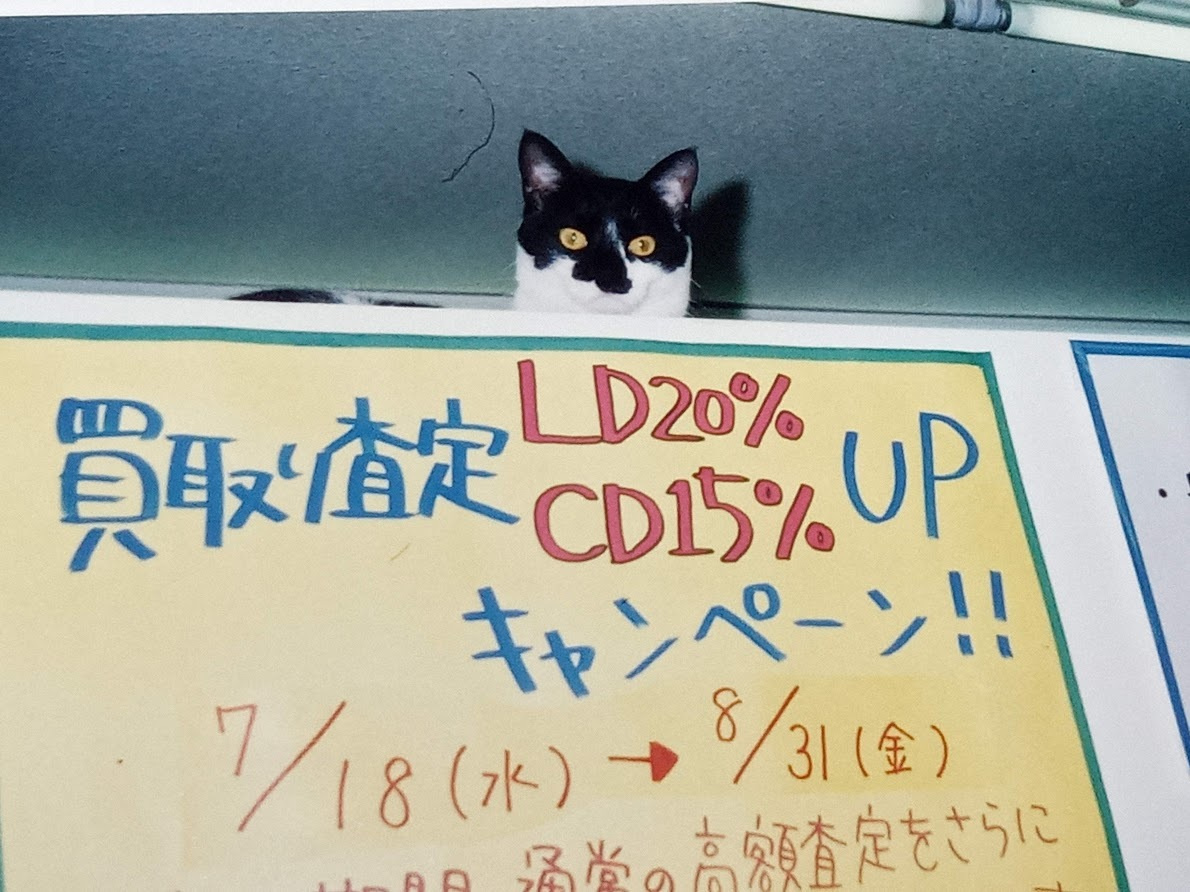 買取り査定 LD20% CD15% UP
キャンペーン!!
7/18(水)→8/31(金)
期間 通常の高額査定をさらに